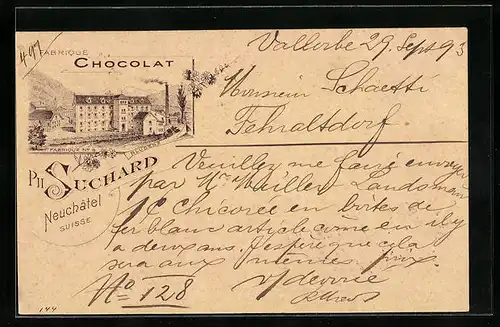 497
FABRIQUE
CHOCOLAT
FABRIQUE No 2
PH. SUCHARD
Neuchâtel
SUISSE
Vallorbe 29 Sept 93
Monsieur Schaetti
Fehraltdorf
Veuillez me faire envoyer
par Mr Muller Landsman
1 C Chicorée en boites de
fer blanc article come en il y
a deux ans. J'espère que cela
sera aux mêmes prix.
No = 128
144